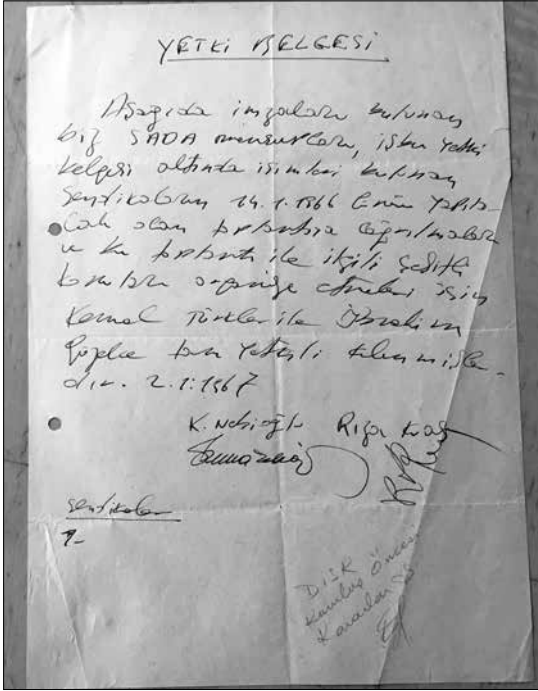 YETKİ BELGESİ
Aşagıda imzaları bulunan
biz SADA mensupları, işbu yetki
belgesi altında isimleri bulunan
Sendikaların 14.1.1966 Günü yapıla-
cak olan toplantıya çağrılmaları
ve bu toplantı ile ilgili çeşitli
konuları organize etmeleri için
Kemal Türkler ile İbrahim
Güzelce tam yetkili kılınmışlar-
dır. 2.1.1967
K. Nebioğlu Rıza
Sendikalar
1-
DİSK
Kuruluş Öncesi